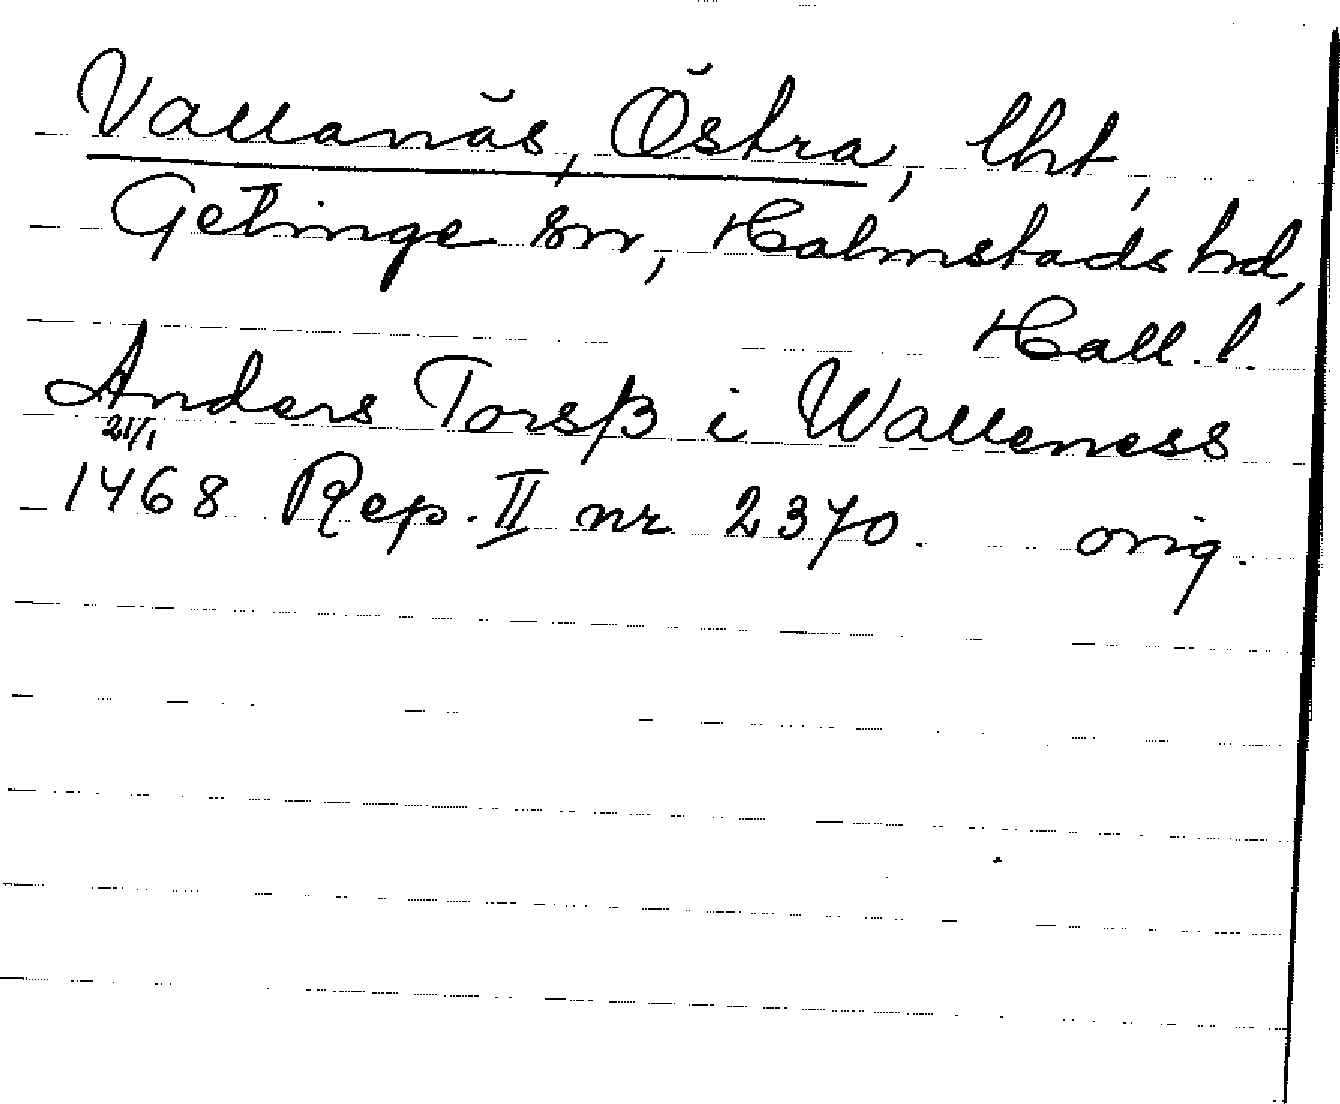 Vallanäs, Östra, lht,
Getinge sn, Halmstads hd,
Hall. l.
Anders Torsß i Walleness
21/1
1468 Rep. II nr 2370. orig.